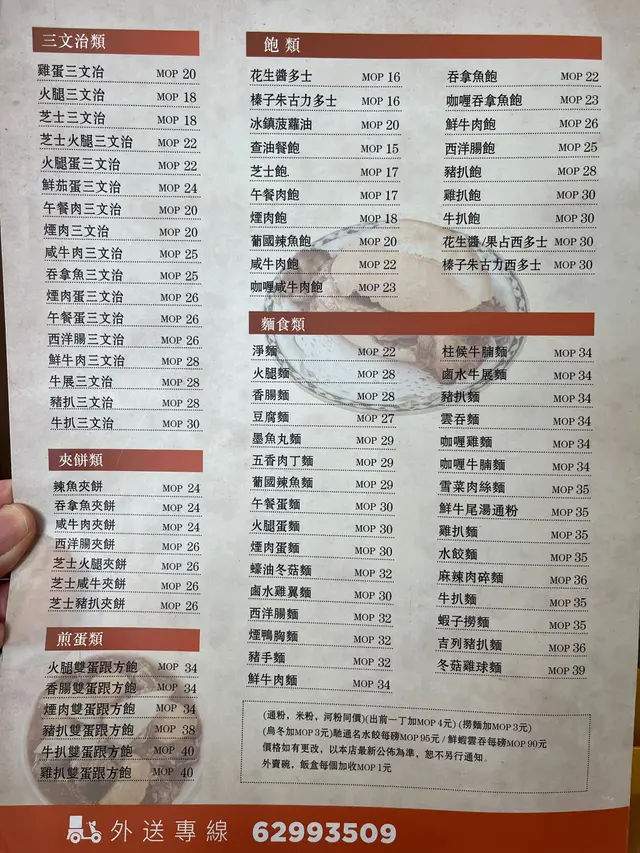 三文治類
雞蛋三文治 MOP 20
火腿三文治 MOP 18
芝士三文治 MOP 18
芝士火腿三文治 MOP 22
火腿蛋三文治 MOP 22
鮮茄蛋三文治 MOP 24
午餐肉三文治 MOP 20
煙肉三文治 MOP 20
咸牛肉三文治 MOP 25
吞拿魚三文治 MOP 25
煙肉蛋三文治 MOP 26
午餐蛋三文治 MOP 26
西洋腸三文治 MOP 26
鮮牛肉三文治 MOP 28
牛展三文治 MOP 28
豬扒三文治 MOP 28
牛扒三文治 MOP 30
夾餅類
辣魚夾餅 MOP 24
吞拿魚夾餅 MOP 24
咸牛肉夾餅 MOP 24
西洋腸夾餅 MOP 26
芝士火腿夾餅 MOP 26
芝士咸牛夾餅 MOP 26
芝士豬扒夾餅 MOP 26
煎蛋類
火腿雙蛋跟方飽 MOP 34
香腸雙蛋跟方飽 MOP 34
煙肉雙蛋跟方飽 MOP 34
豬扒雙蛋跟方飽 MOP 38
牛扒雙蛋跟方飽 MOP 40
雞扒雙蛋跟方飽 MOP 40
飽類
花生醬多士 MOP 16
榛子朱古力多士 MOP 16
冰鎮菠蘿油 MOP 20
查油餐飽 MOP 15
芝士飽 MOP 17
午餐肉飽 MOP 17
煙肉飽 MOP 18
葡國辣魚飽 MOP 20
咸牛肉飽 MOP 22
咖喱咸牛肉飽 MOP 23
吞拿魚飽 MOP 22
咖喱吞拿魚飽 MOP 23
鮮牛肉飽 MOP 26
西洋腸飽 MOP 25
豬扒飽 MOP 28
雞扒飽 MOP 30
牛扒飽 MOP 30
花生醬/果占西多士 MOP 30
榛子朱古力西多士 MOP 30
麵食類
淨麵 MOP 22
火腿麵 MOP 28
香腸麵 MOP 28
豆腐麵 MOP 27
墨魚丸麵 MOP 29
五香肉丁麵 MOP 29
葡國辣魚麵 MOP 29
午餐蛋麵 MOP 30
火腿蛋麵 MOP 30
煙肉蛋麵 MOP 30
蠔油冬菇麵 MOP 32
鹵水雞翼麵 MOP 30
西洋腸麵 MOP 32
煙鴨胸麵 MOP 32
豬手麵 MOP 32
鮮牛肉麵 MOP 34
柱候牛腩麵 MOP 34
鹵水牛展麵 MOP 34
豬扒麵 MOP 34
雲吞麵 MOP 34
咖喱雞麵 MOP 34
咖喱牛腩麵 MOP 34
雪菜肉絲麵 MOP 35
鮮牛尾湯通粉 MOP 35
雞扒麵 MOP 35
水餃麵 MOP 35
麻辣肉碎麵 MOP 36
牛扒麵 MOP 35
蝦子撈麵 MOP 35
吉列豬扒麵 MOP 36
冬菇雞球麵 MOP 39
(通粉，米粉，河粉同價)(出前一丁加MOP 4元)(撈麵加MOP 3元)
(烏冬加MOP 3元)馳通名水餃每磅MOP 95元 / 鮮蝦雲吞每磅MOP 90元
價格如有更改，以本店最新公佈為準，恕不另行通知。
外賣碗，飯盒每個加收MOP 1元
外送專線 62993509